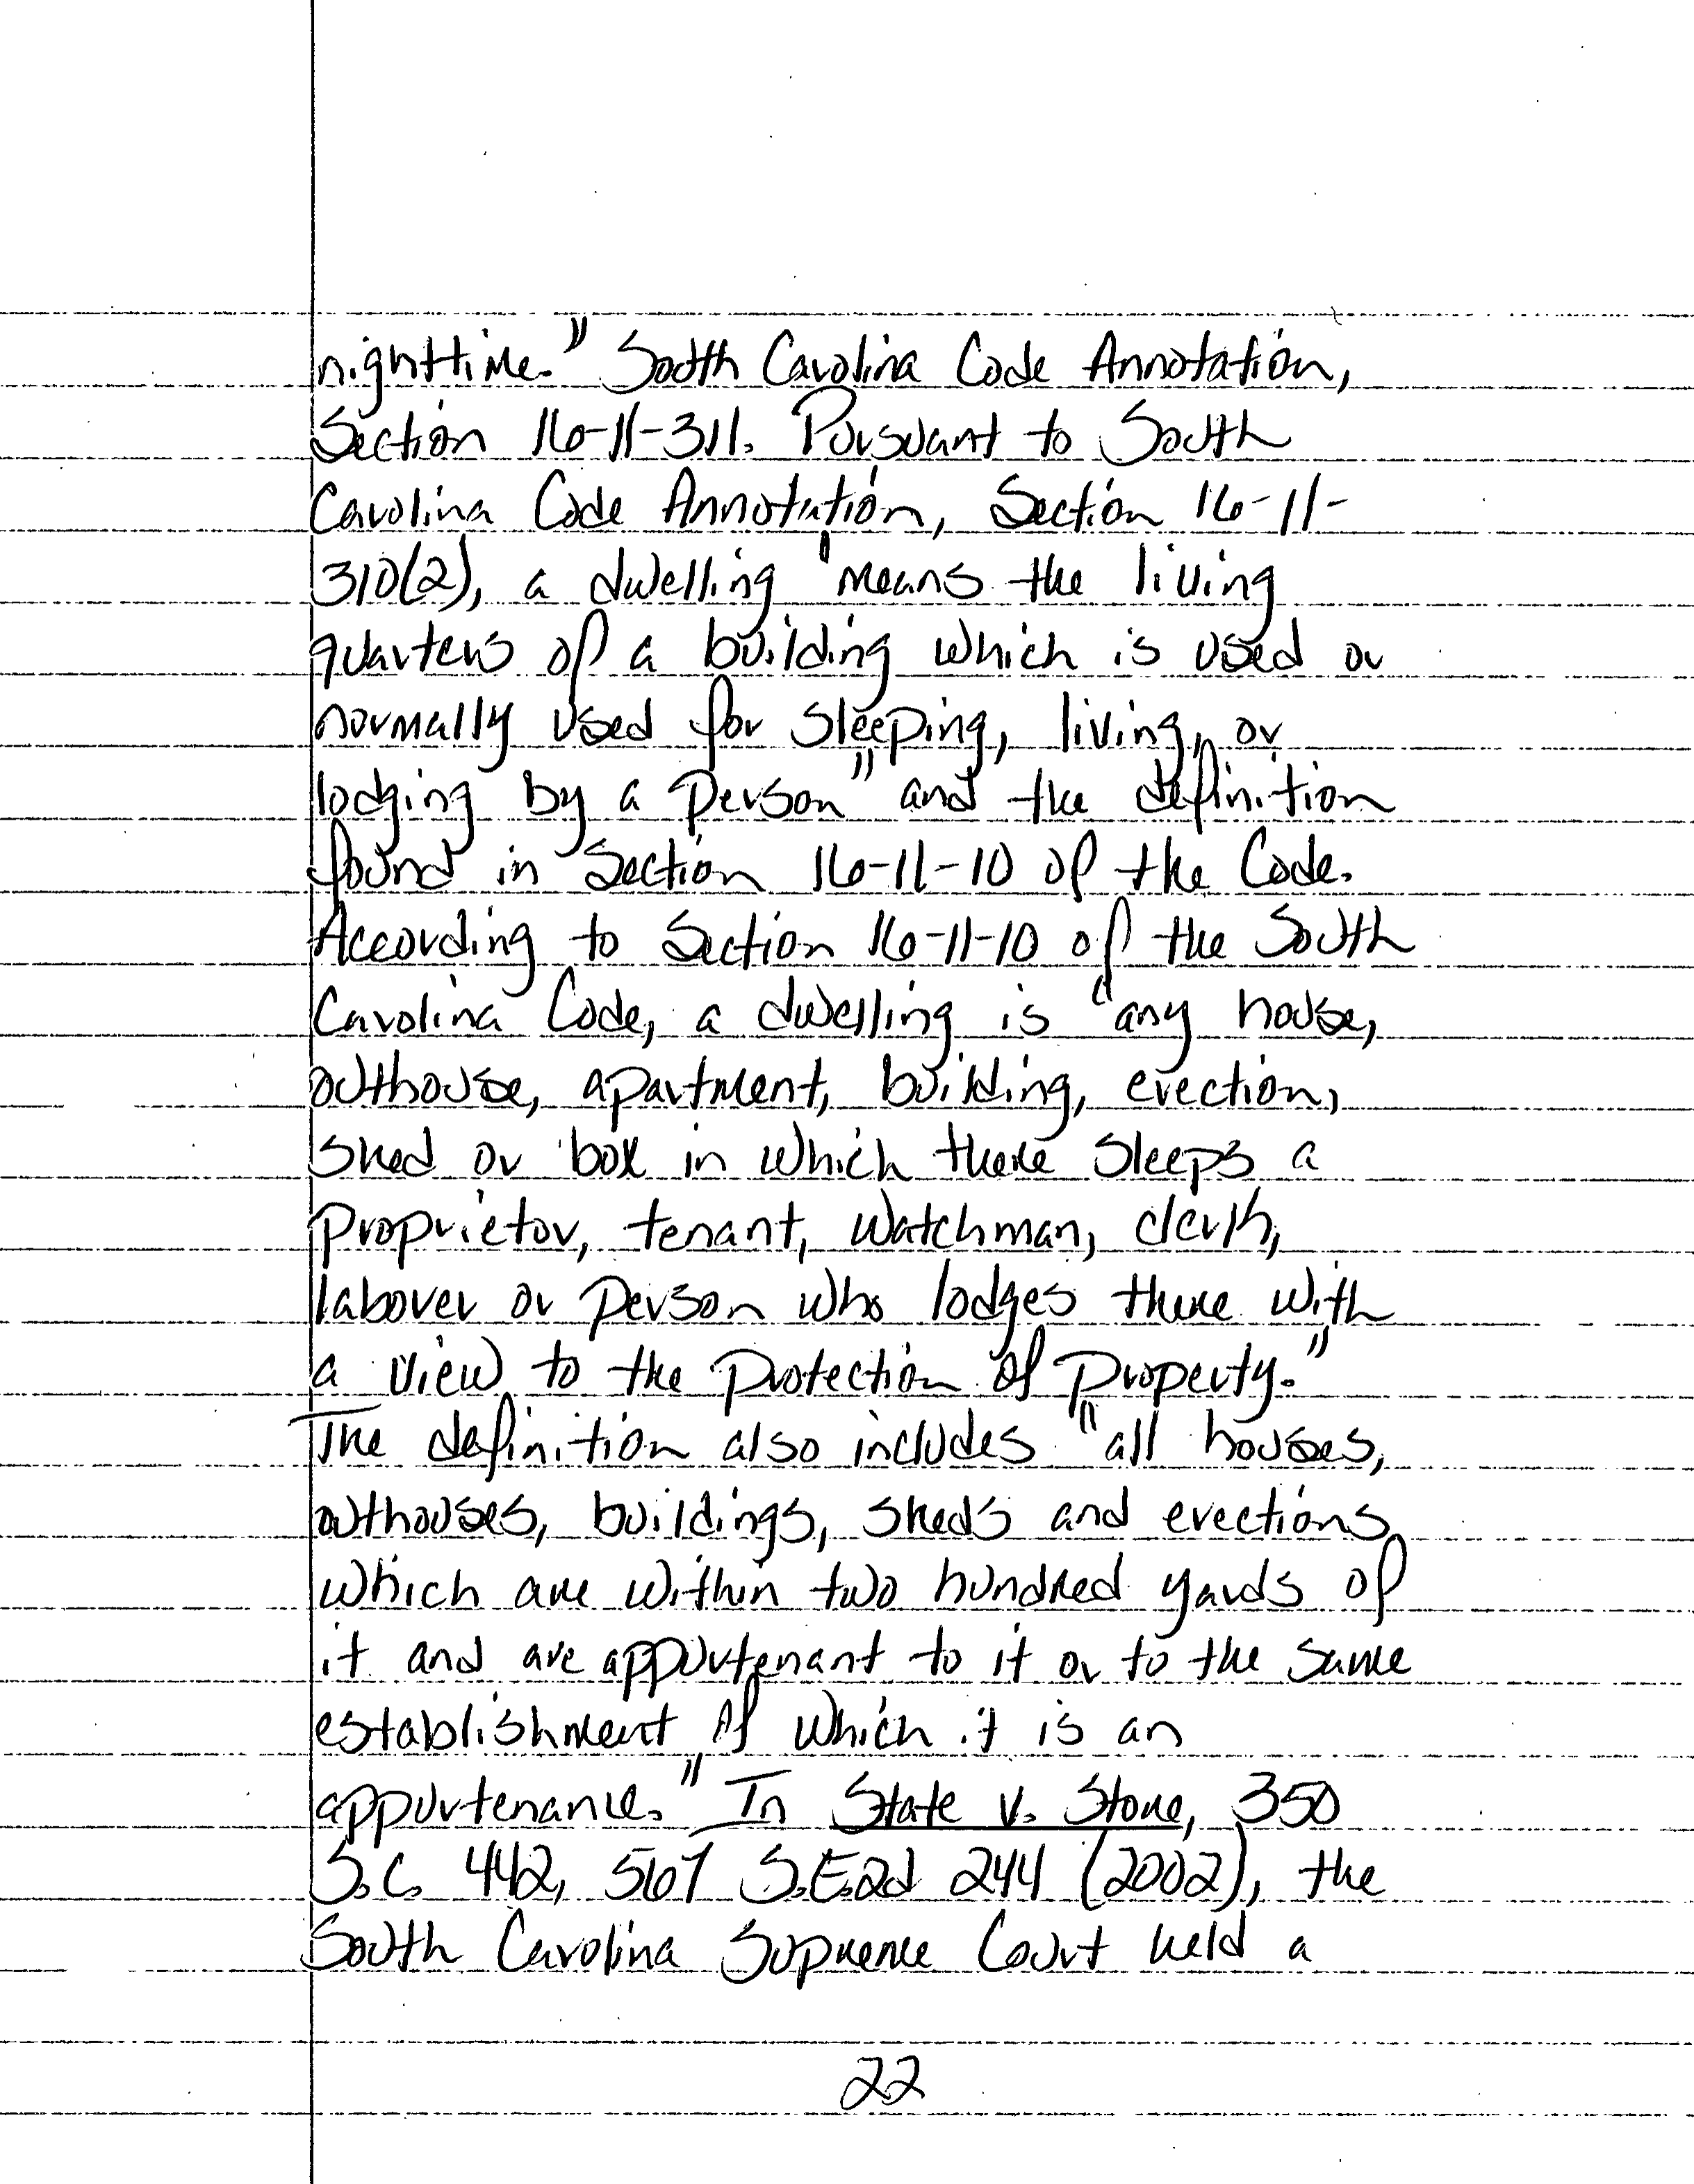 nighttime." South Carolina Code Annotation,
Section 16-11-311. Pursuant to South
Carolina Code Annotation, Section 16-11-
310(2), a dwelling "means the living
quarters of a building which is used or
normally used for sleeping, living, or
lodging by a person" and the definition
found in Section 16-11-10 of the Code.
According to Section 16-11-10 of the South
Carolina Code, a dwelling is "any house,
outhouse, apartment, building, erection,
shed or box in which there sleeps a
proprietor, tenant, watchman, clerk,
laborer or person who lodges there with
a view to the protection of property."
The definition also includes "all houses,
outhouses, buildings, sheds and erections
which are within two hundred yards of
it and are appurtenant to it or to the same
establishment of which it is an
appurtenance." In State v. Stone, 350
S.C. 442, 567 S.E.2d 244 (2002), the
South Carolina Supreme Court held a
22